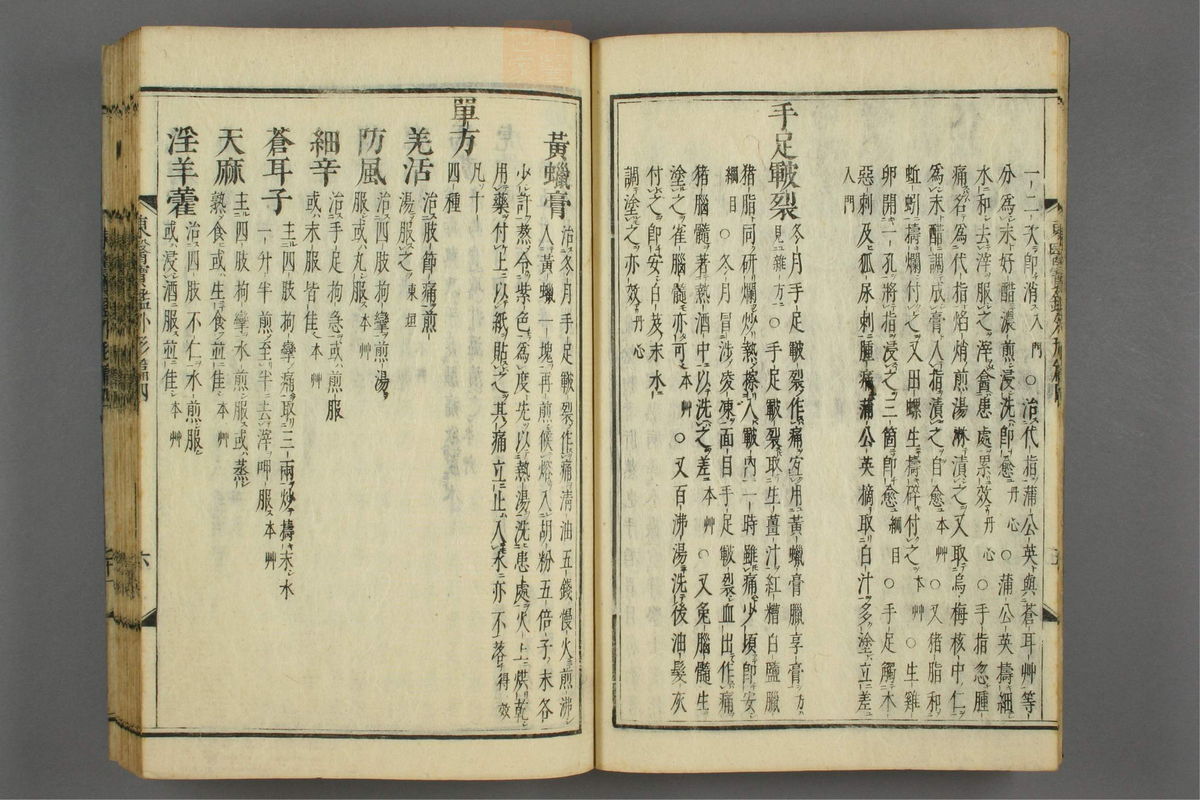 一二次卽消入門○治代指蒲公英與蒼耳艸等
分爲末好醋濃煎浸洗卽愈丹心○蒲公英擣細
水和去滓服之滓罯患處累效丹心○手指忽腫
痛名爲代指焰焇煎湯淋漬之又取烏梅核中仁
爲末醋調成膏入指漬之自愈本艸○又猪脂和
蚯蚓擣爛付之又田螺生擣碎付之本艸○生雞
卵開一孔將指浸之三箇卽愈綱目○手足觸木
惡刺及狐尿刺腫痛蒲公英摘取白汁多塗立差
入門
手足皸裂冬月手足皸裂作痛宜用黃蠟膏臘享膏方
見雜方○手足皸裂取生薑汁紅糟白鹽臘
猪脂同研爛炒熱擦入皸內一時雖痛少頃卽安
綱目○冬月冒涉凌凍面目手足皸裂血出作痛
猪腦髓著熱酒中以洗之差本艸○又兔腦髓生
塗之雀腦髓亦可本艸○又百沸湯洗後油髮灰
付之卽安白芨末水
調塗之亦效丹心
黃蠟膏治冬月手足皸裂作痛淸油五錢慢火煎沸
入黃蠟一塊再煎候熔入胡粉五倍子末各
少許熬令紫色爲度先以熱湯洗患處火上烘乾
用藥付上以紙貼之其痛立止入水亦不落得效
單方凡十
四種
羌活治肢節痛煎
湯服之東垣
防風治四肢拘攣煎湯
服或丸服本艸
細辛治手足拘急或煎服
或末服皆佳本艸
蒼耳子主四肢拘攣痛取三兩炒擣末水
一升半煎至半去滓呷服本艸
天麻主四肢拘攣水煎服或蒸
熟食或生食並佳本艸
淫羊藿治四肢不仁水煎服
或浸酒服並佳本艸
東醫寶鑑外形篇四
六